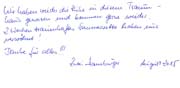 Wir haben wieder die Ruhe in diesem Traum-
haus genossen und kommen gerne wieder.
2 Wochen traumhaftes Sommerwetter haben uns
verwöhnt!
Danke für alles!!!
August 2015